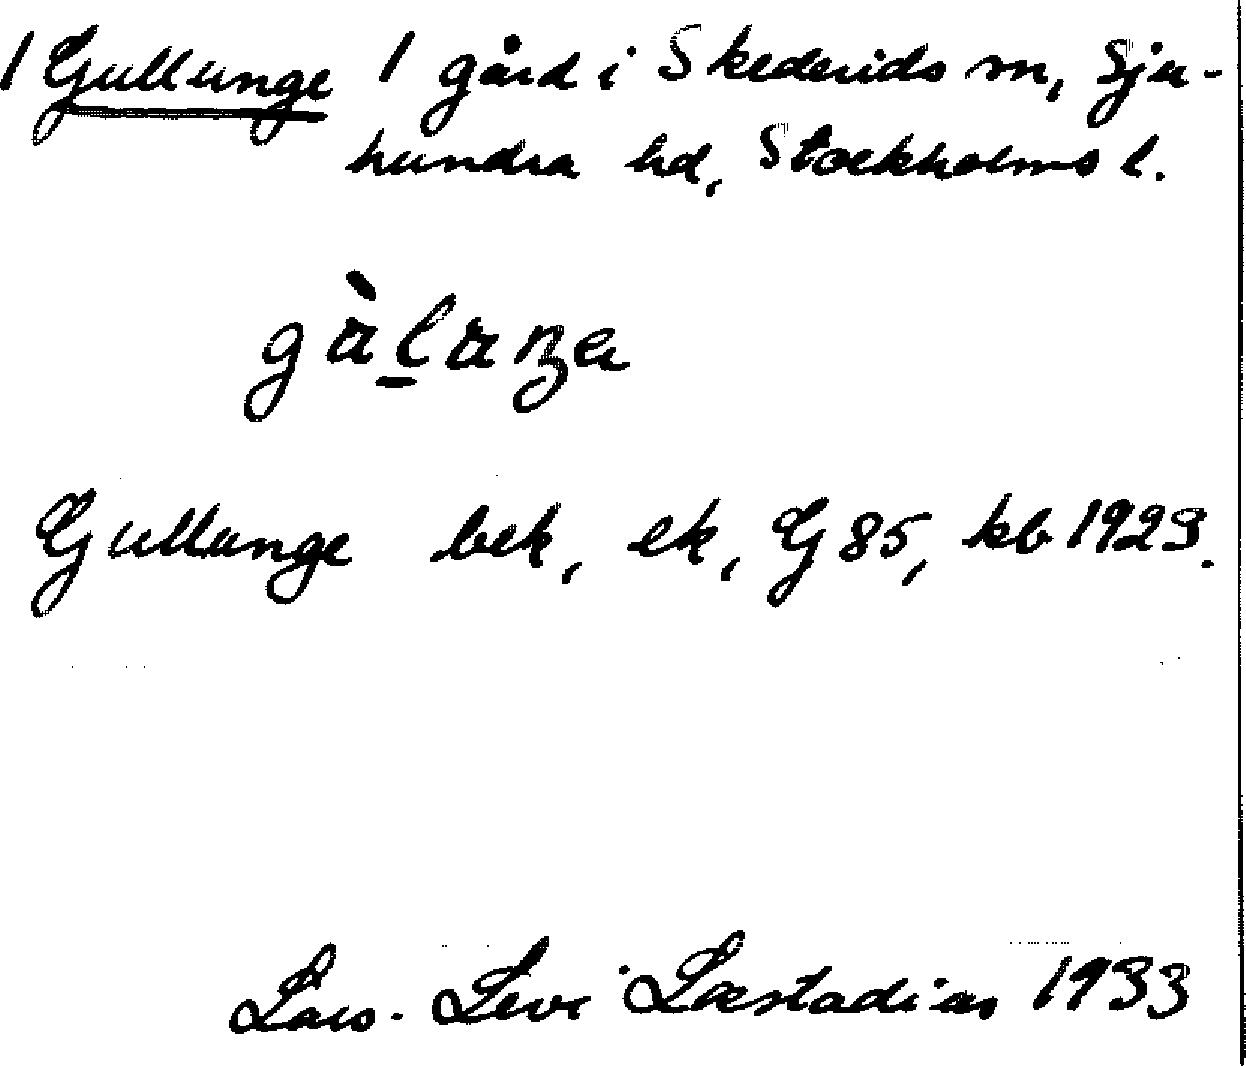 1 Gullunge 1 gård i Skederids sn, Sju-
hundra hd, Stockholms l.
Gullunge bek, ek, G 85, kb 1929.
Lars-Levi Læstadius 1933